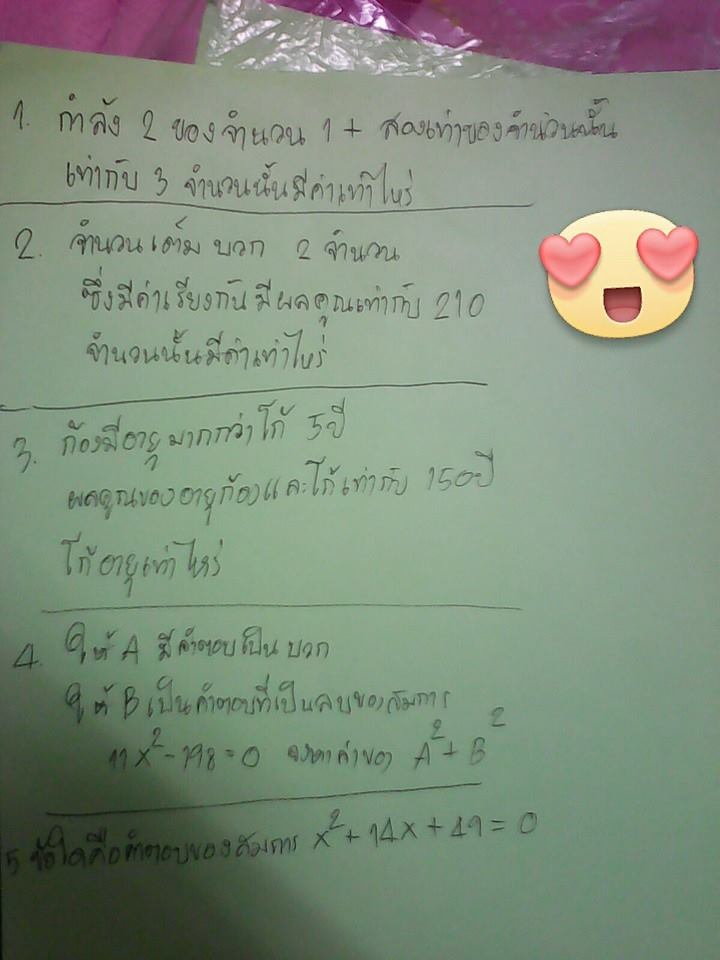 1. กำลัง 2 ของจำนวน 1 + สองเท่าของจำนวนนั้น
เท่ากับ 3 จำนวนนั้นมีค่าเท่าไหร่
2. จำนวนเต็มบวก 2 จำนวน
ซึ่งมีค่าเรียงกันมีผลคูณเท่ากับ 210
จำนวนนั้นมีค่าเท่าไหร่
3. ก้องมีอายุมากกว่าโก้ 5 ปี
ผลคูณของอายุก้องและโก้เท่ากับ 150 ปี
โก้อายุเท่าไหร่
4. ให้ A มีคำตอบเป็นบวก
ให้ B เป็นคำตอบที่เป็นลบของสมการ
11x² - 198 = 0 จงหาค่าของ A² + B²
5 ข้อใดคือคำตอบของสมการ x² + 14x + 49 = 0